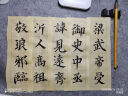 梁武帝受
御史中丞
諱見遠齊
沂人高祖
敬琅邪臨